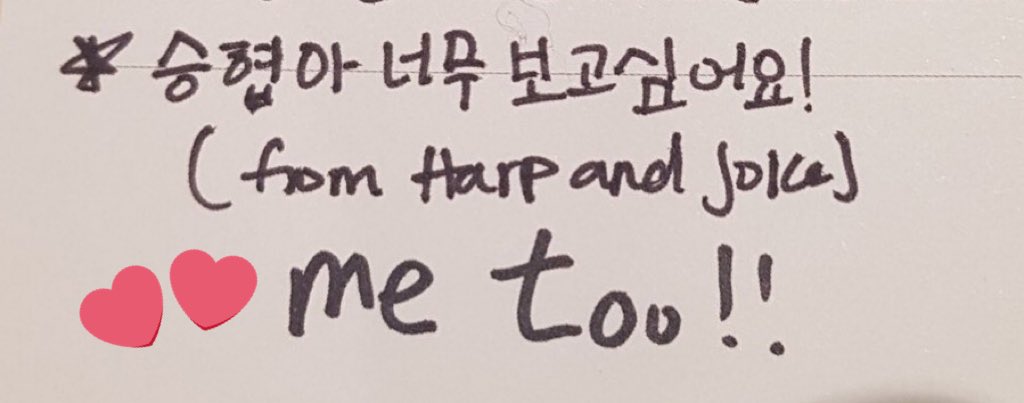 * 승협아 너무 보고싶어요!
(from Harp and Joke)
me too!!